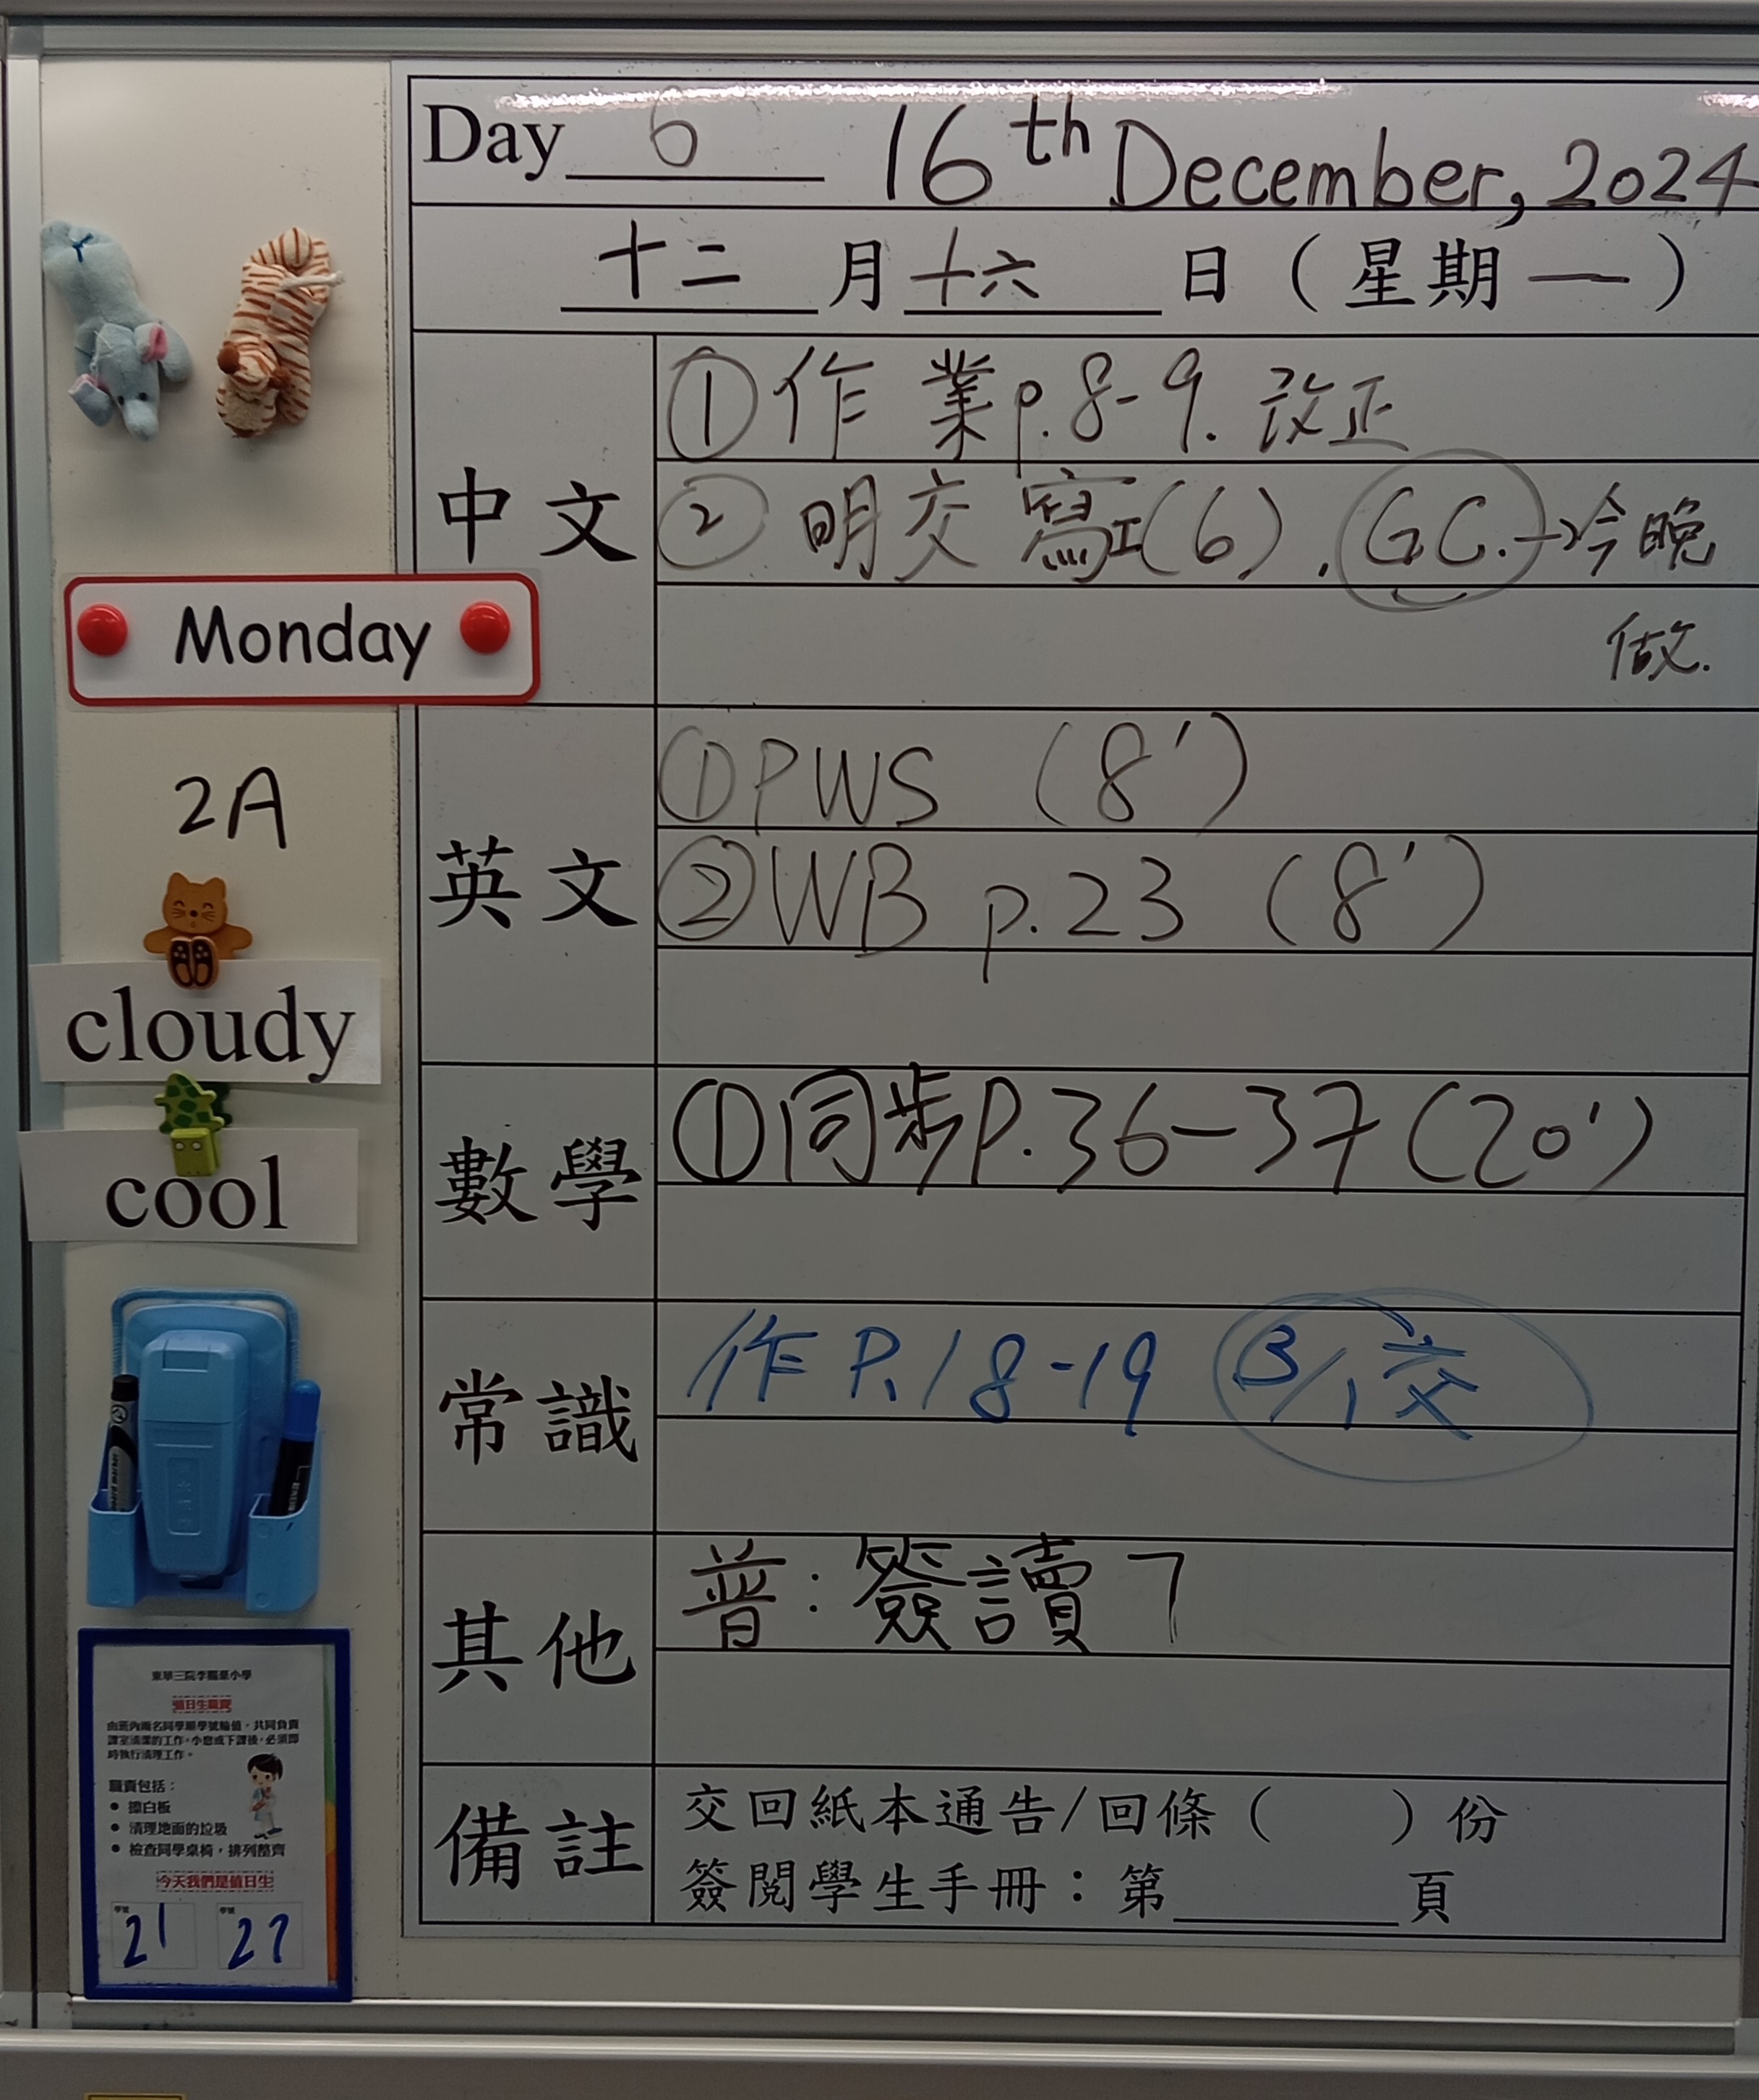 Day 6 16th December, 2024
十二 月 十六 日 ( 星期 一 )
中文
① 作業 p.8-9. 改正
② 明交 寫工(6). G.C. → 今晚
做.
Monday
2A
英文
① PWS (8')
② WB p.23 (8')
cloudy
cool
數學
① 同步 P.36-37 (20')
常識
作 P.18-19 3/1 交
其他
普: 簽讀7
備註
交回紙本通告/回條 ( ) 份
簽閱學生手冊：第 頁
值日生職責
由班內兩名同學順學號輪值，共同負責
課室清潔的工作。小息或下課後，必須即
時執行清理工作。
職責包括：
• 擦白板
• 清理地面的垃圾
• 檢查同學桌椅，排列整齊
今天我們是值日生
學號 學號
21 27